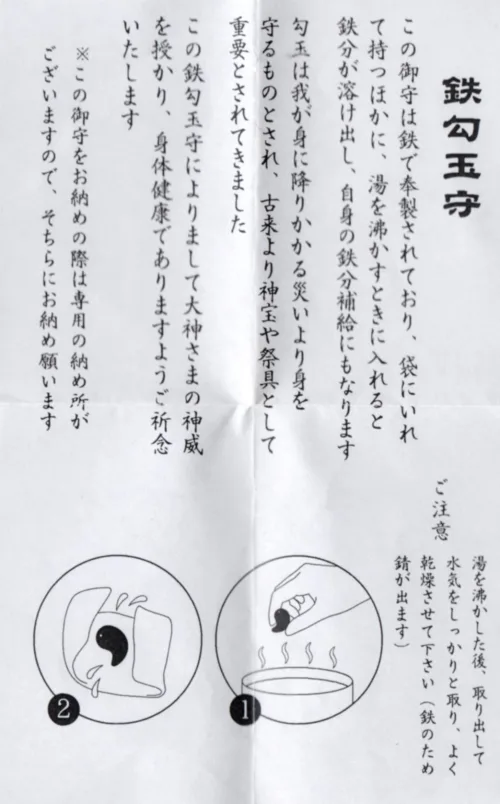 鉄勾玉守
この御守は鉄で奉製されており、袋にいれ
て持つほかに、湯を沸かすときに入れると
鉄分が溶け出し、自身の鉄分補給にもなります
勾玉は我が身に降りかかる災いより身を
守るものとされ、古来より神宝や祭具として
重要とされてきました
この鉄勾玉守によりまして大神さまの神威
を授かり、身体健康でありますようご祈念
いたします
※この御守をお納めの際は専用の納め所が
ございますので、そちらにお納め願います
ご注意
湯を沸かした後、取り出して
水気をしっかりと取り、よく
乾燥させて下さい（鉄のため
錆が出ます）
1
2